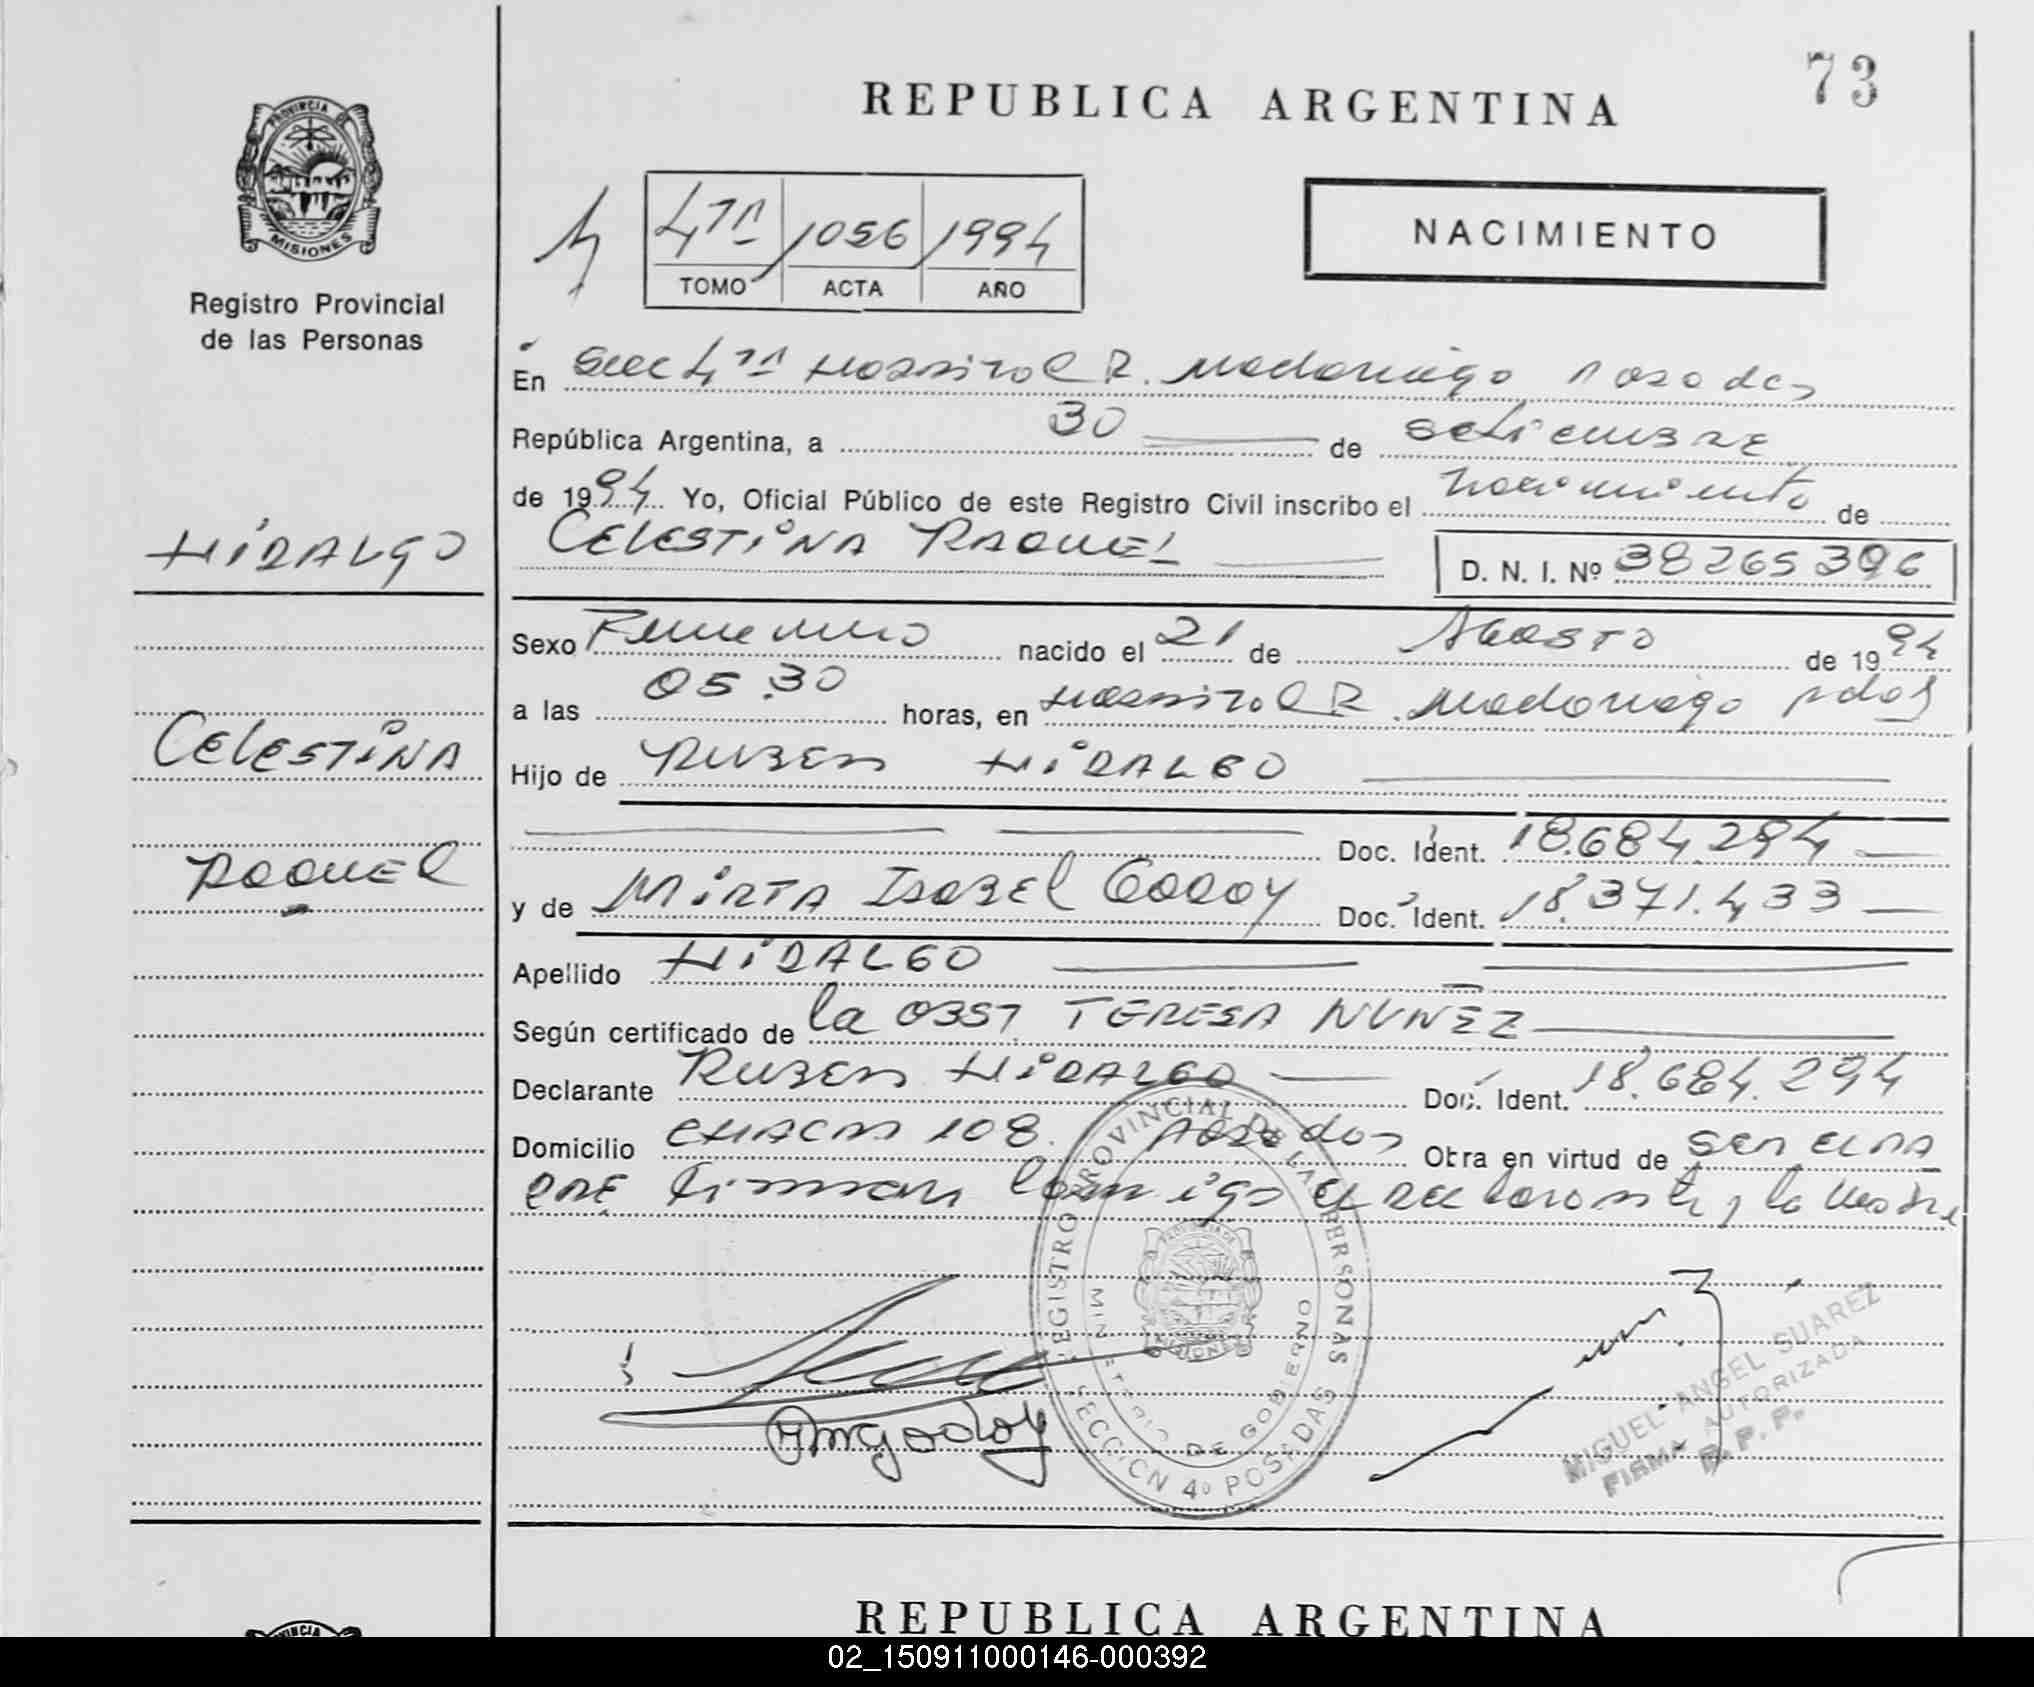 73
REPUBLICA ARGENTINA
PROVINCIA DE
MISIONES
Registro Provincial
de las Personas
4ta 1056 1994
TOMO ACTA AÑO
NACIMIENTO
En Secc 4ta Hospital R. Madariaga Posadas
República Argentina, a 30 de setiembre
de 1994 Yo, Oficial Público de este Registro Civil inscribo el nacimiento de
HIDALGO
CELESTINA RAQUEL D. N. I. Nº 38265396
Sexo Femenino nacido el 21 de Agosto de 1994
a las 05.30 horas, en Hospital R. Madariaga pdas
CELESTINA
Hijo de RUBEN HIDALGO
Doc. Ident. 18.684.294
RAQUEL
y de MIRTA ISABEL GODOY Doc. Ident. 18.371.433
Apellido HIDALGO
Según certificado de la OBST. TERESA NUÑEZ
Declarante RUBEN HIDALGO Doc. Ident. 18.684.294
Domicilio CHACRA 108. Posadas Otra en virtud de ser el PA
DRE firman conmigo el declarante y la Madre
REGISTRO PROVINCIAL DE LAS PERSONAS
MINISTERIO DE GOBIERNO
SECCION 4º POSADAS
MIGUEL ANGEL SUAREZ
FIRMA AUTORIZADA
R.P.P.
REPUBLICA ARGENTINA
02_150911000146-000392